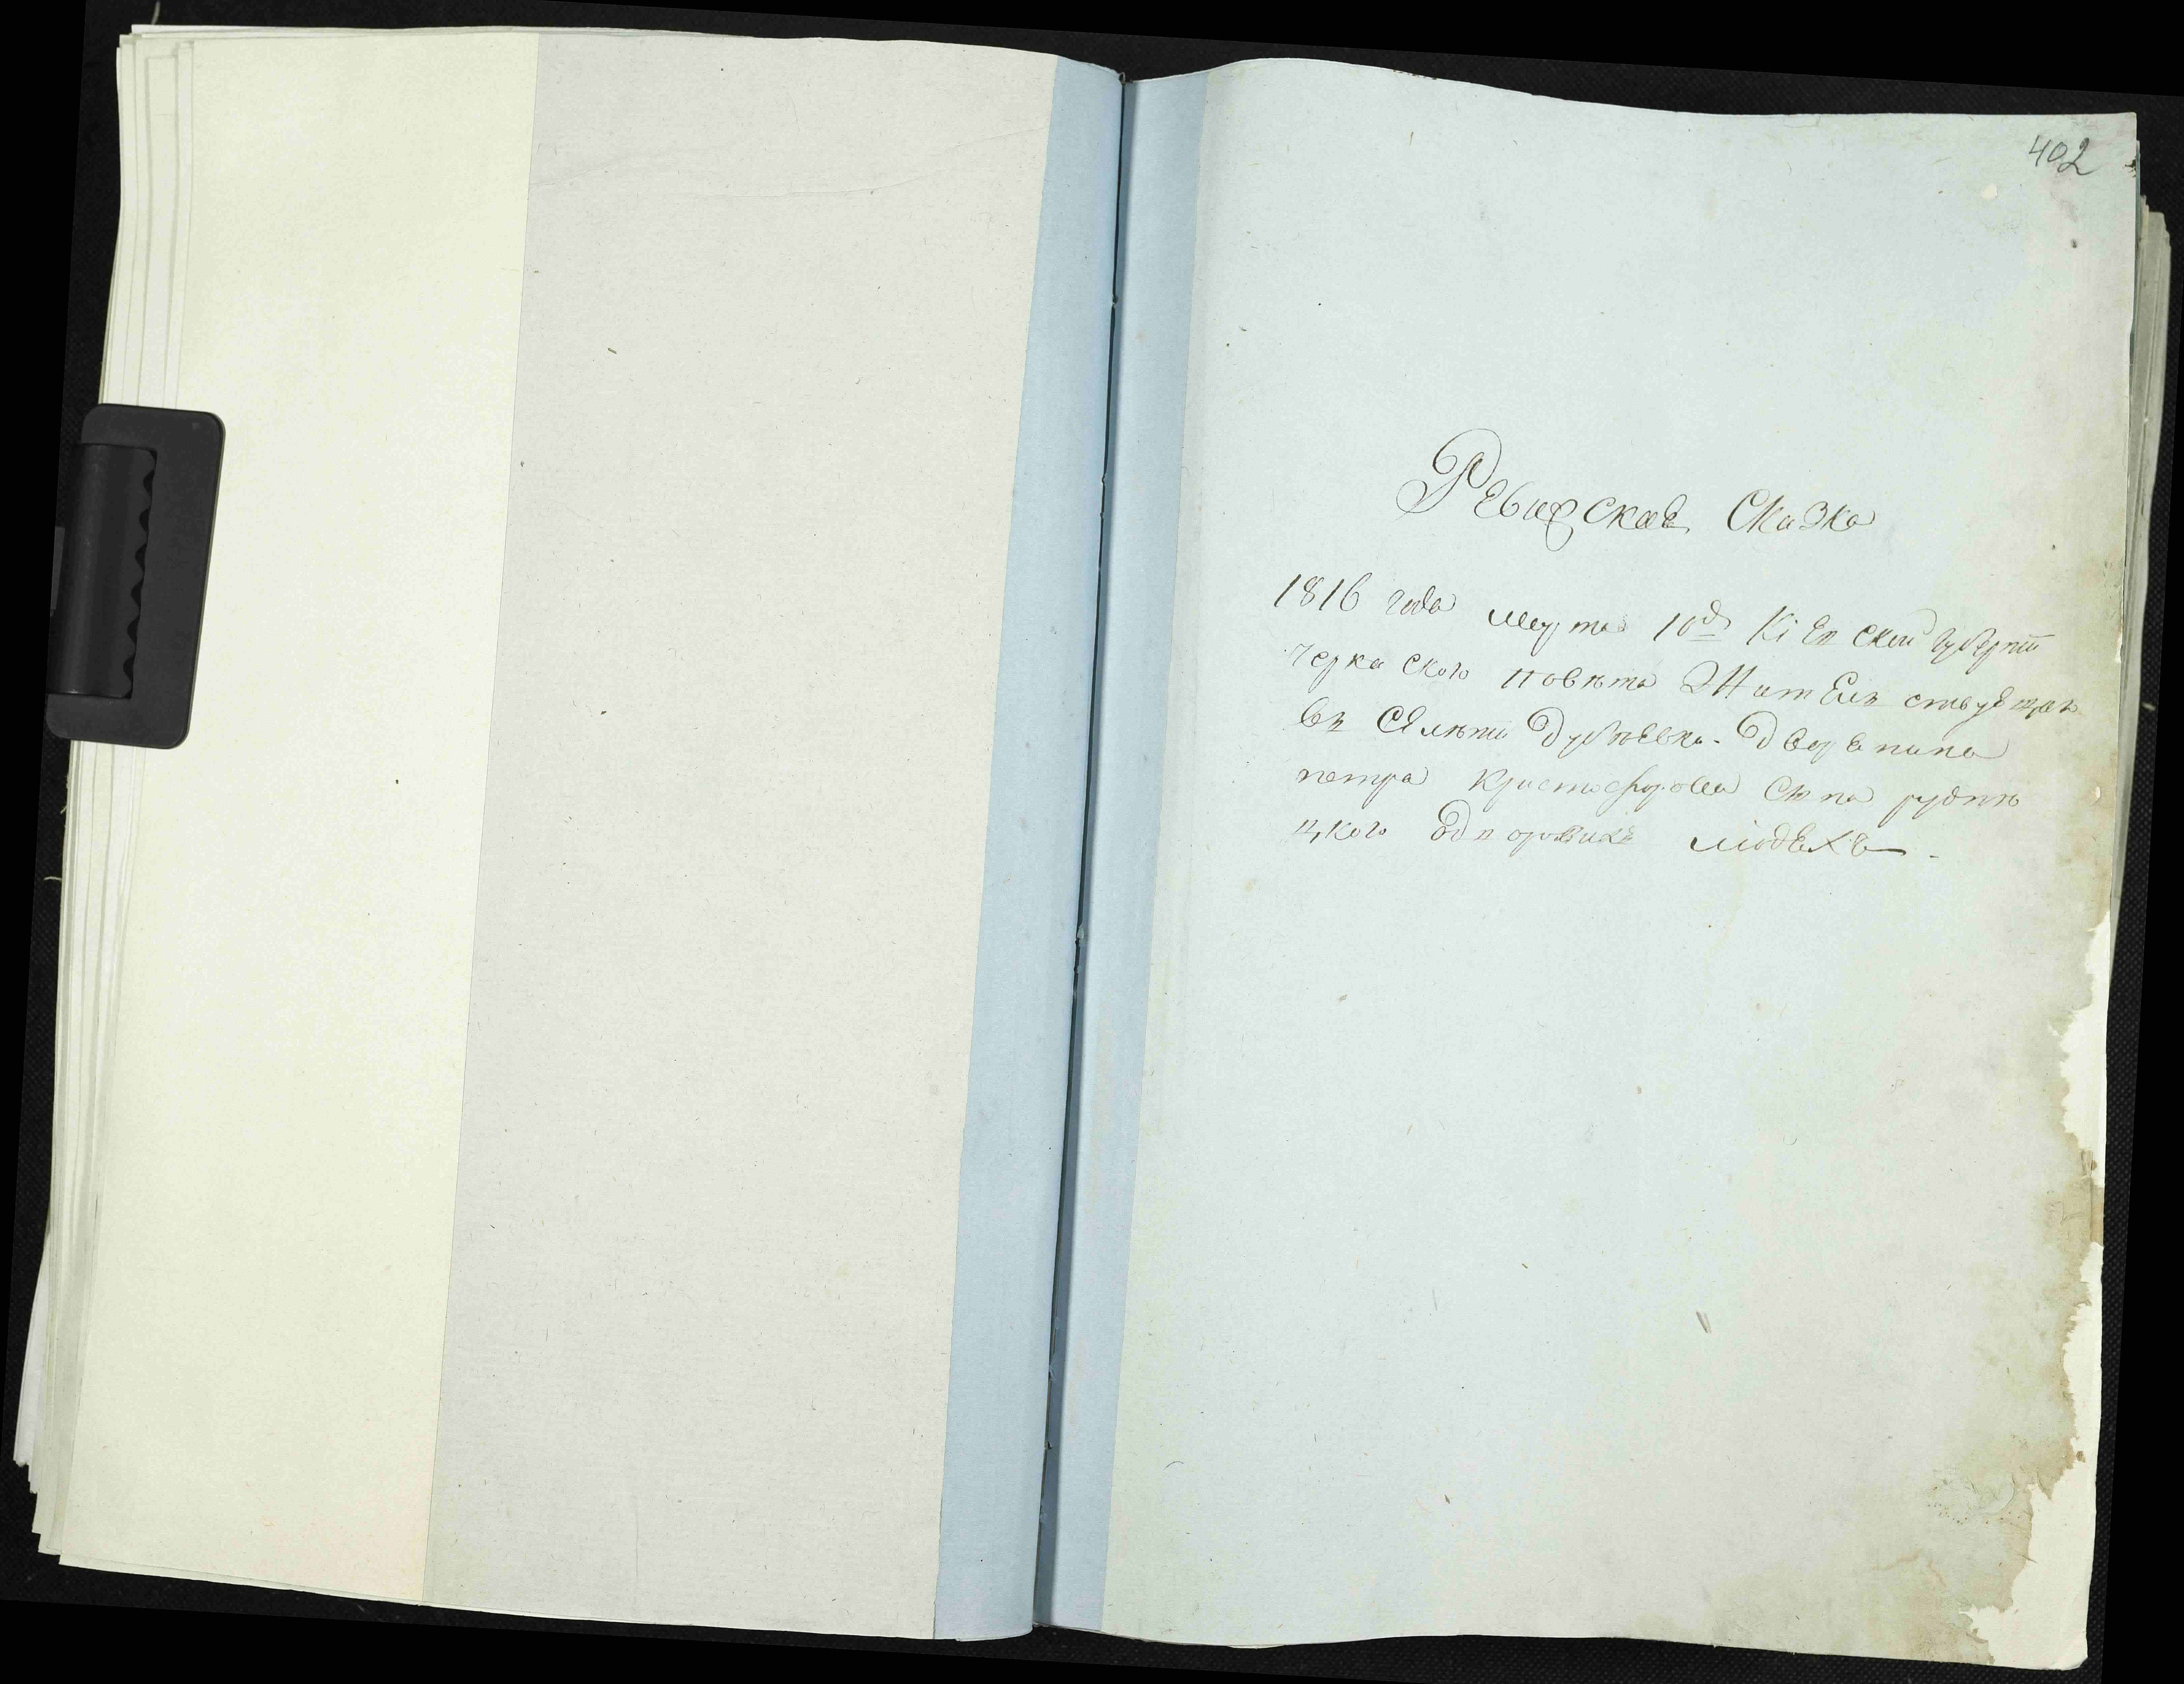 402
Ревизская Сказка
1816 года Марта 10д Кіевской губернїи
Черкаского повѣта Жительствующаго
въ Селѣнии Дубіевка. Дворянина
петра Кристофорова Сына рудни
цкого о дворовихъ людяхъ.